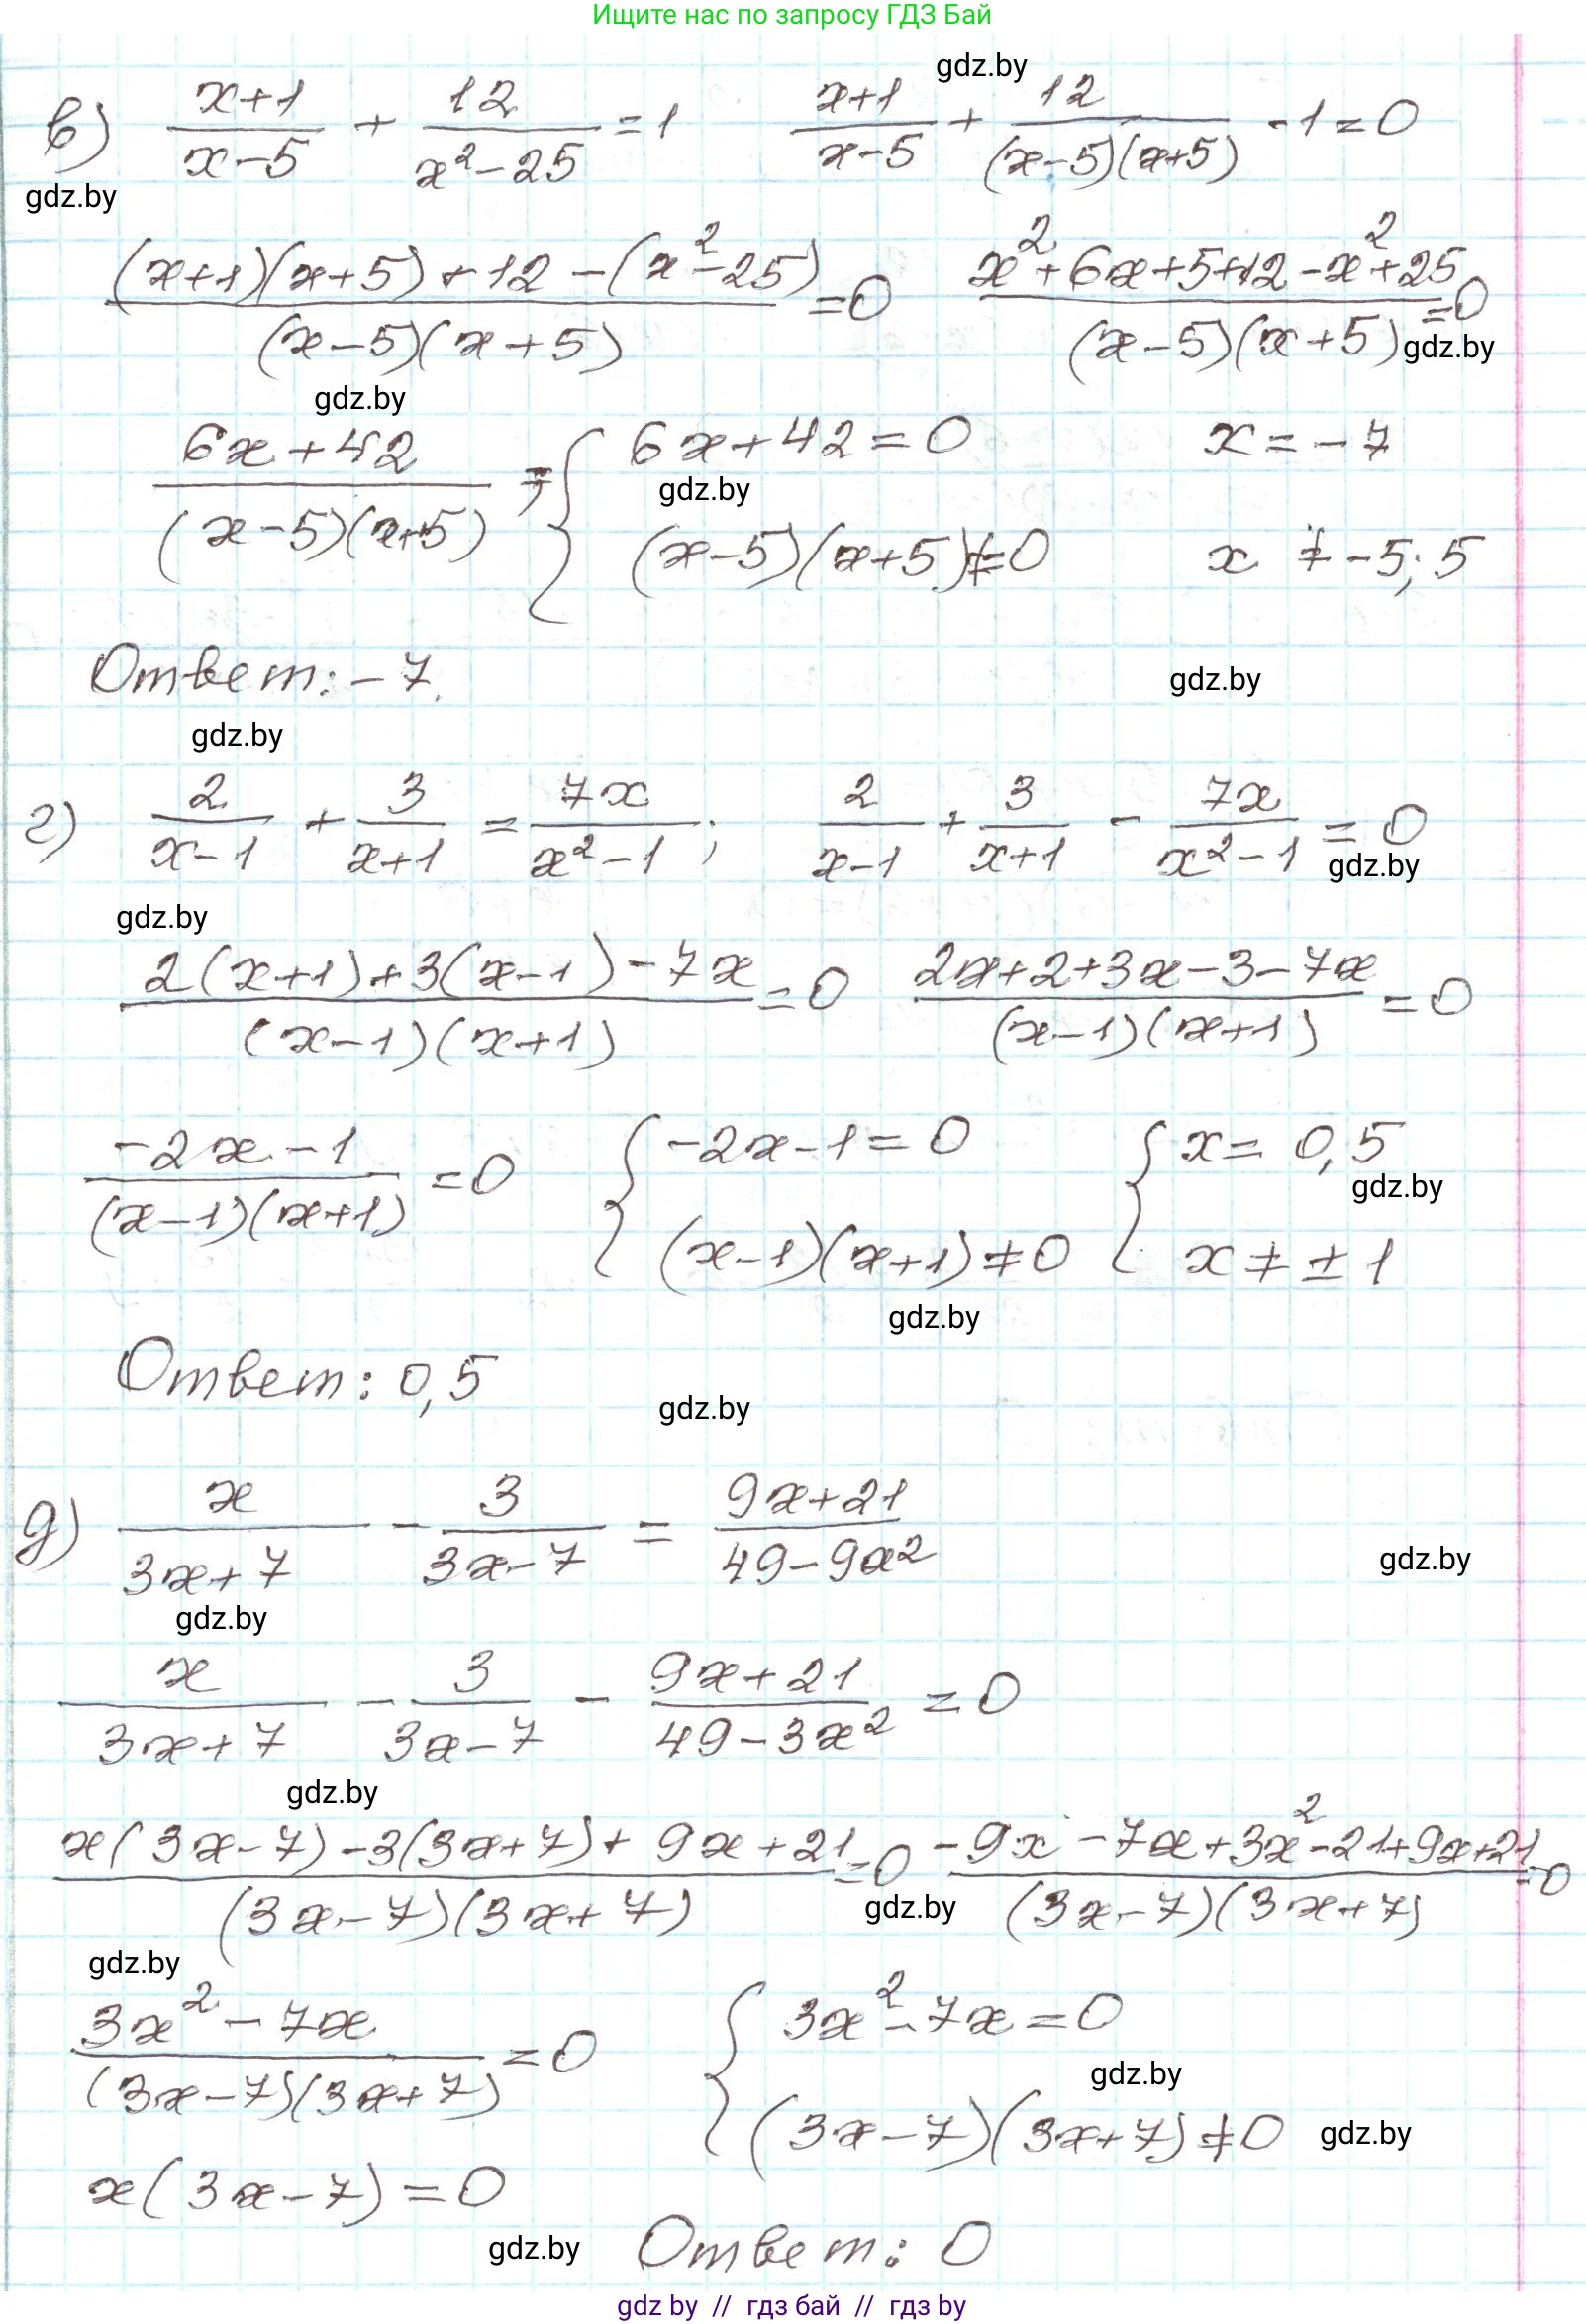 Ищите нас по запросу ГДЗ Бай
gdz.by
в) (x+1)/(x-5) + 12/(x²-25) = 1   (x+1)/(x-5) + 12/((x-5)(x+5)) - 1 = 0
gdz.by
((x+1)(x+5)+12-(x²-25))/((x-5)(x+5)) = 0   (x²+6x+5+12-x²+25)/((x-5)(x+5)) = 0
gdz.by
gdz.by
(6x+42)/((x-5)(x+5)) = ; { 6x+42=0   x=-7
gdz.by
(x-5)(x+5)≠0   x ≠ -5; 5
Ответ: -7.
gdz.by
gdz.by
г) 2/(x-1) + 3/(x+1) = 7x/(x²-1);   2/(x-1) + 3/(x+1) - 7x/(x²-1) = 0
gdz.by
gdz.by
(2(x+1)+3(x-1)-7x)/((x-1)(x+1)) = 0   (2x+2+3x-3-7x)/((x-1)(x+1)) = 0
(-2x-1)/((x-1)(x+1)) = 0   { -2x-1=0   { x= 0,5
gdz.by
(x-1)(x+1)≠0   x≠±1
gdz.by
Ответ: 0,5
gdz.by
д) x/(3x+7) - 3/(3x-7) = (9x+21)/(49-9x²)
gdz.by
gdz.by
x/(3x+7) - 3/(3x-7) - (9x+21)/(49-3x²) = 0
gdz.by
(x(3x-7)-3(3x+7)+9x+21)/((3x-7)(3x+7)) = 0   (-9x-7x+3x²-21+9x+21)/((3x-7)(3x+7)) = 0
gdz.by
gdz.by
(3x²-7x)/((3x-7)(3x+7)) = 0   { 3x²-7x=0
gdz.by
(3x-7)(3x+7)≠0
gdz.by
x(3x-7)=0
gdz.by
Ответ: 0
gdz by // гдз бай // гдз by